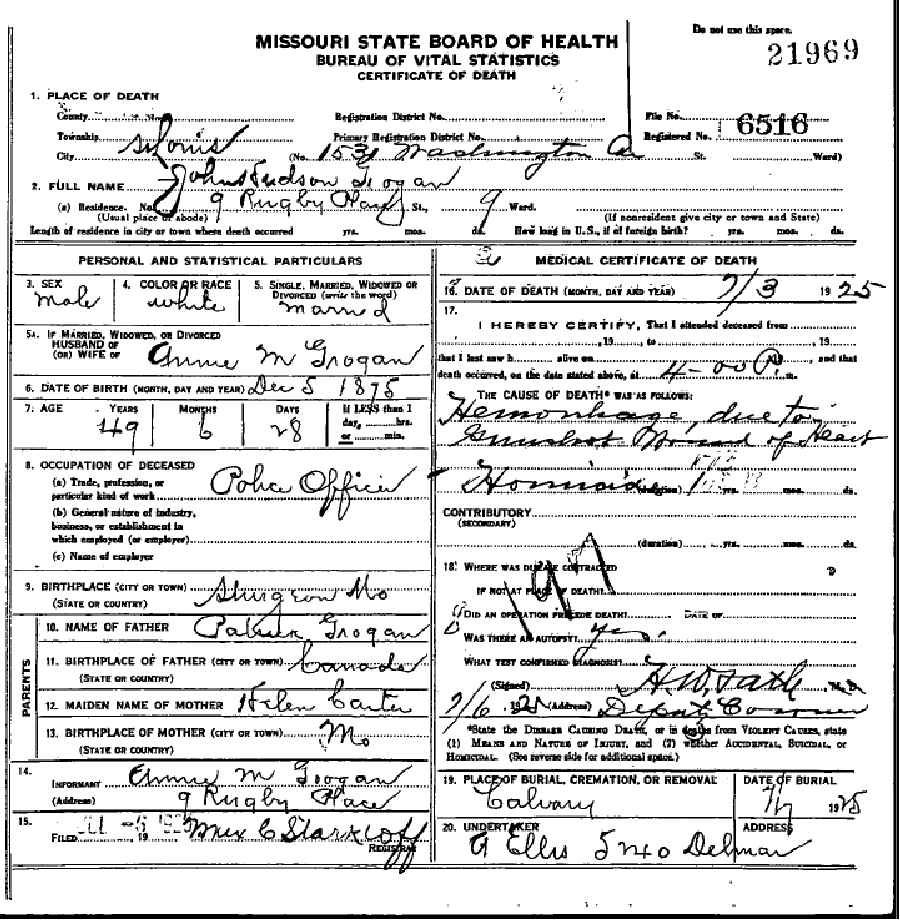 Do not use this space.
21969
MISSOURI STATE BOARD OF HEALTH
BUREAU OF VITAL STATISTICS
CERTIFICATE OF DEATH
1. PLACE OF DEATH
County
Registration District No.
File No.
Township
Primary Registration District No.
Registered No. 6516
City St Louis (No. 1531 Washington St. Ward)
2. FULL NAME John Hudson Grogan
(a) Residence. No. 9 Rugby Place St., 9 Ward.
(Usual place of abode) (If nonresident give city or town and State)
Length of residence in city or town where death occurred yrs. mos. ds. How long in U.S., if of foreign birth? yrs. mos. ds.
PERSONAL AND STATISTICAL PARTICULARS
3. SEX
male
4. COLOR OR RACE
white
5. SINGLE, MARRIED, WIDOWED OR
DIVORCED (write the word)
married
5a. IF MARRIED, WIDOWED, OR DIVORCED
HUSBAND OF
(OR) WIFE OF Annie M Grogan
6. DATE OF BIRTH (MONTH, DAY AND YEAR) Dec 5 1875
7. AGE YEARS MONTHS DAYS If LESS than 1
day, hrs.
or min.
49 6 28
8. OCCUPATION OF DECEASED
(a) Trade, profession, or
particular kind of work Police Officer
(b) General nature of industry,
business, or establishment in
which employed (or employer)
(c) Name of employer
9. BIRTHPLACE (CITY OR TOWN) Sturgeon Mo
(STATE OR COUNTRY)
PARENTS
10. NAME OF FATHER Patrick Grogan
11. BIRTHPLACE OF FATHER (CITY OR TOWN) Canada
(STATE OR COUNTRY)
12. MAIDEN NAME OF MOTHER Helen Carter
13. BIRTHPLACE OF MOTHER (CITY OR TOWN) Mo
(STATE OR COUNTRY)
14.
INFORMANT Annie M Grogan
(Address) 9 Rugby Place
15.
FILED JUL -6 19 Max C Starkloff
REGISTRAR
MEDICAL CERTIFICATE OF DEATH
16. DATE OF DEATH (MONTH, DAY AND YEAR) 7/3 1925
17.
I HEREBY CERTIFY, That I attended deceased from
, 19 , to , 19
that I last saw h alive on , 19 , and that
death occurred, on the date stated above, at 4-00 P. m.
THE CAUSE OF DEATH* WAS AS FOLLOWS:
Hemorrhage, due to
Gunshot Wound of Heart
Homicide (duration) yrs. mos. ds.
CONTRIBUTORY
(SECONDARY)
(duration) yrs. mos. ds.
18. WHERE WAS DISEASE CONTRACTED
IF NOT AT PLACE OF DEATH?
DID AN OPERATION PRECEDE DEATH? DATE OF
WAS THERE AN AUTOPSY? yes.
WHAT TEST CONFIRMED DIAGNOSIS?
(Signed) M.D.
7/6, 1925 (Address) Deputy Coroner
*State the DISEASE CAUSING DEATH, or in deaths from VIOLENT CAUSES, state
(1) MEANS AND NATURE OF INJURY, and (2) whether ACCIDENTAL, SUICIDAL, or
HOMICIDAL. (See reverse side for additional space.)
19. PLACE OF BURIAL, CREMATION, OR REMOVAL
Calvary
DATE OF BURIAL
7/7 1925
20. UNDERTAKER
ADDRESS
Ellis Delmar